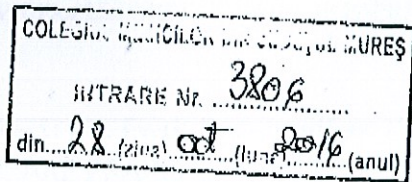 COLEGIUL MEDICILOR DIN JUDEȚUL MUREȘ
INTRARE Nr. 3806
din 28 (ziua) oct (luna) 2016 (anul)